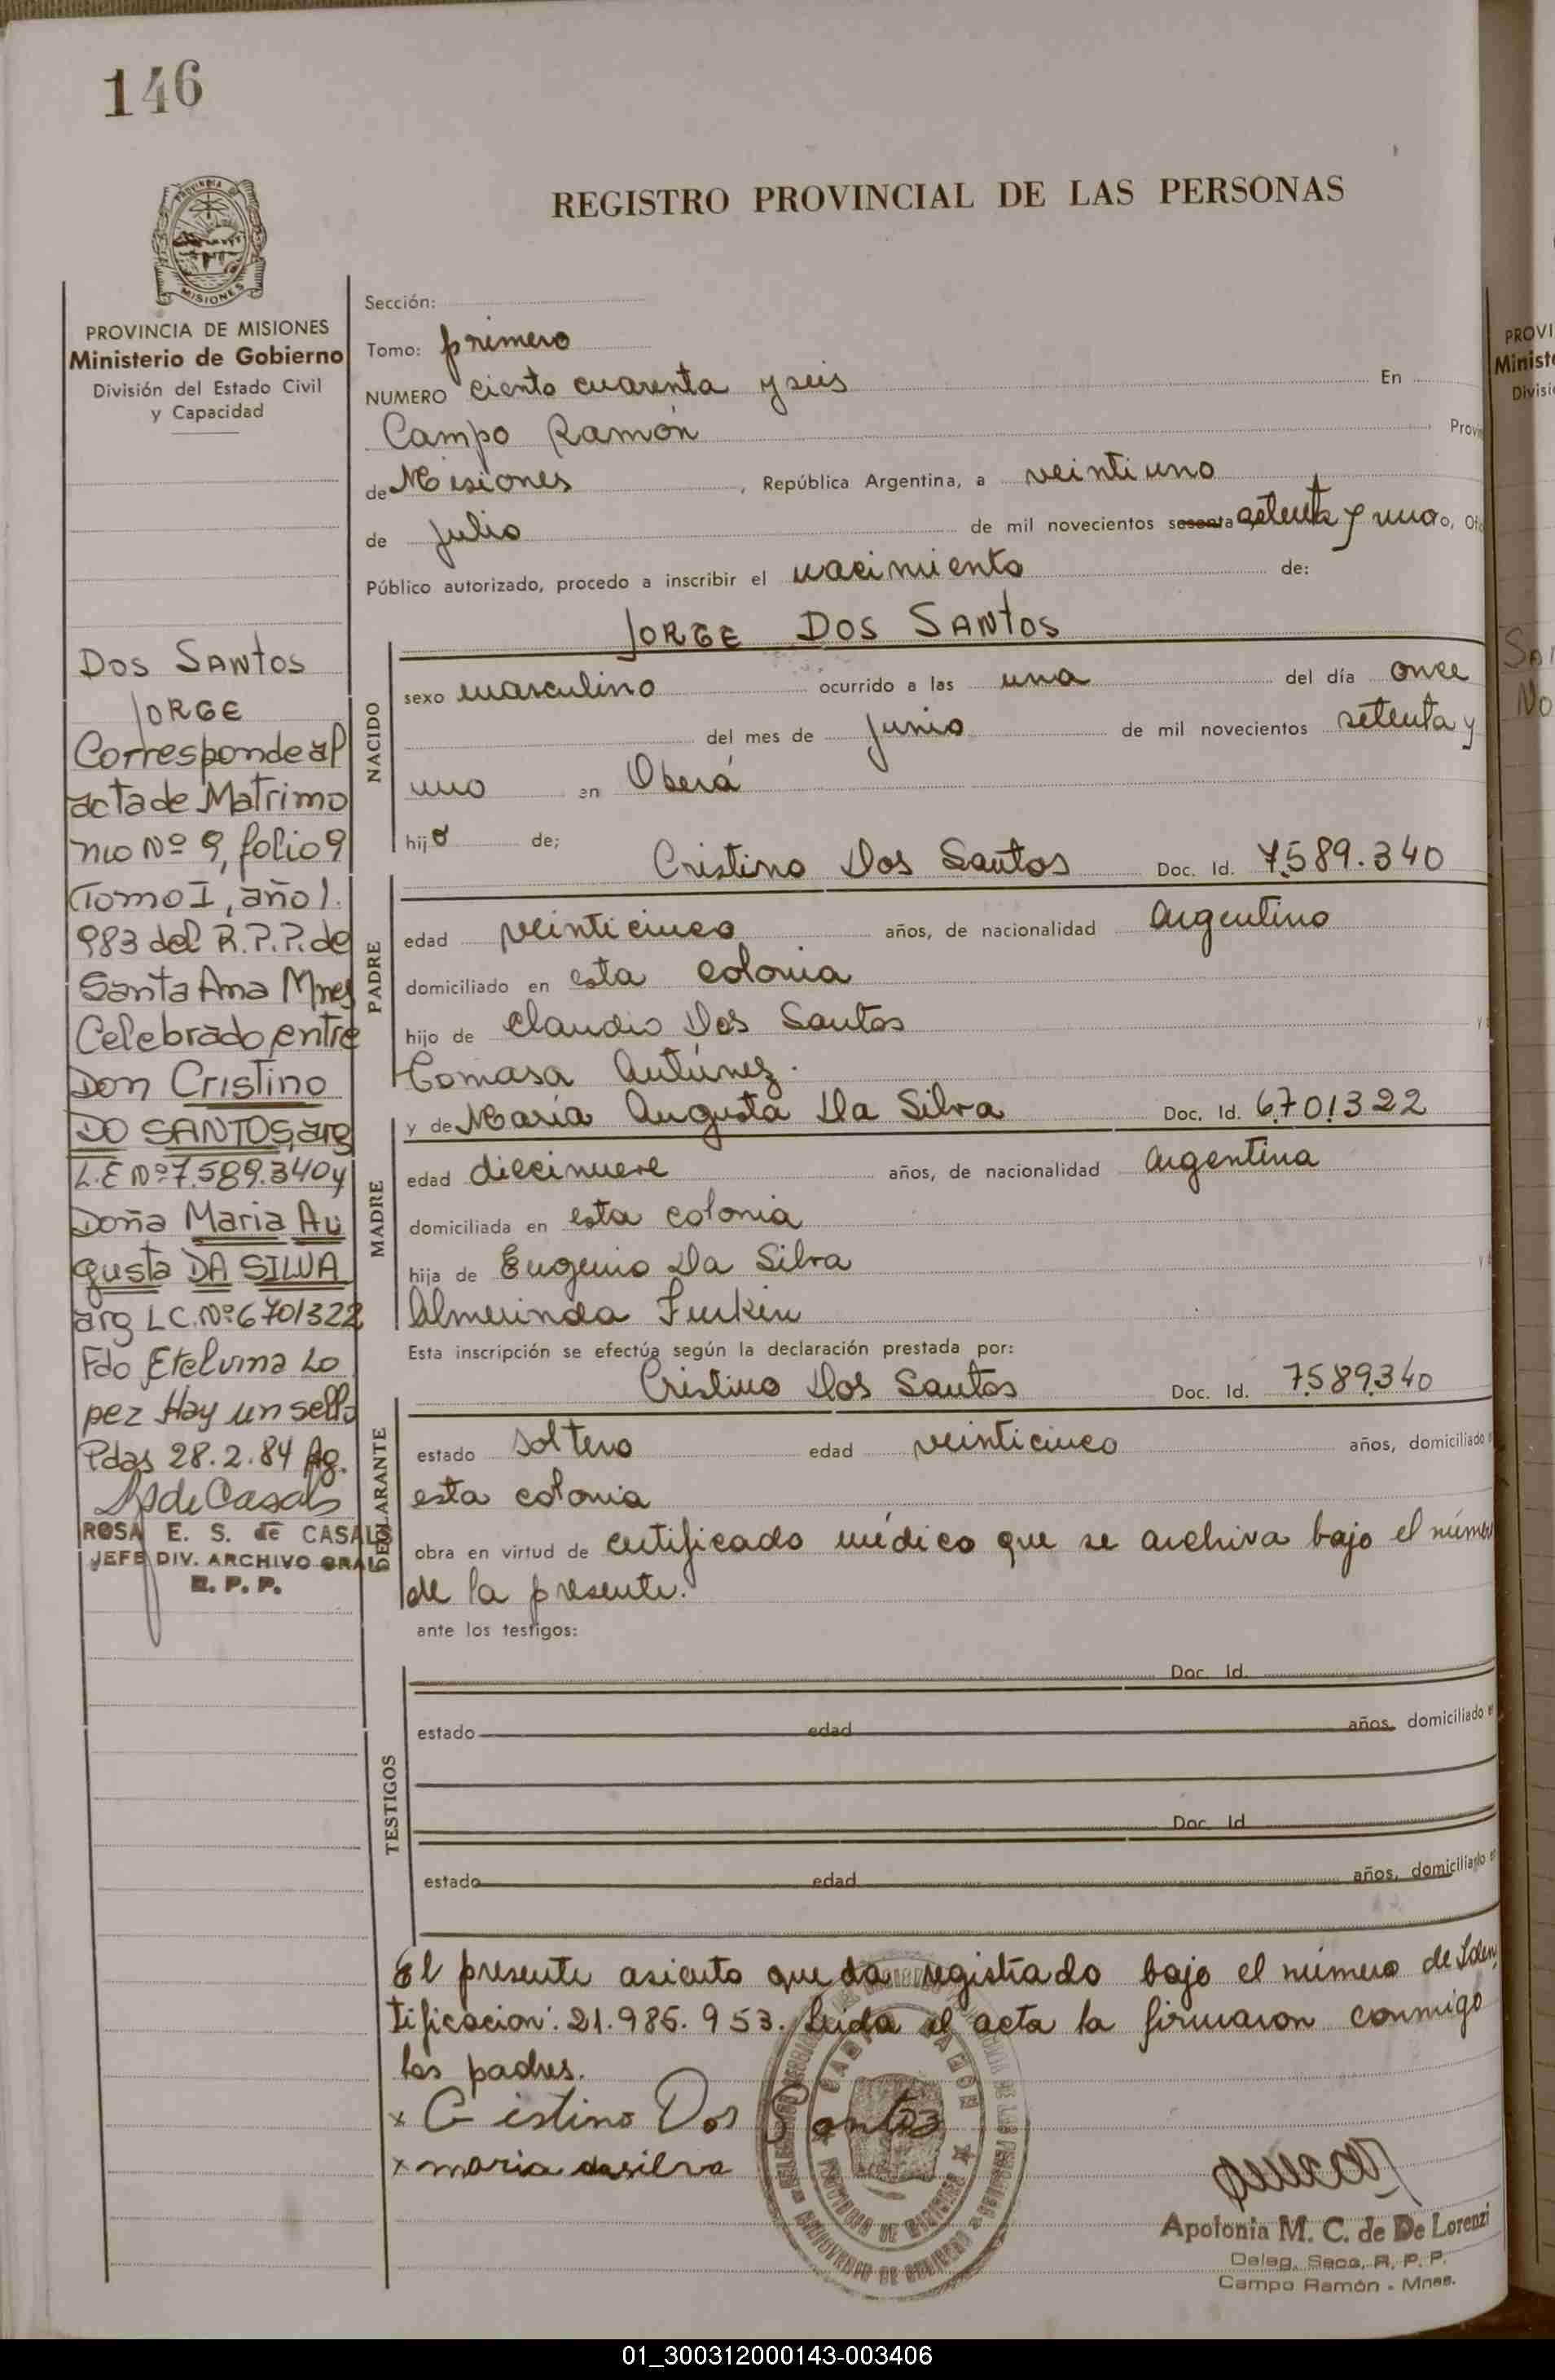 146
REGISTRO PROVINCIAL DE LAS PERSONAS
MISIONES
PROVINCIA DE MISIONES
Ministerio de Gobierno
División del Estado Civil
y Capacidad
Dos Santos
Jorge
Corresponde al
acta de Matrimo
nio Nº 9, folio 9
Tomo I, año 1.
983 del R.P.P. de
Santa Ana Mnes
Celebrado entre
Don Cristino
DO SANTOS, arg
L.E Nº 7.589.340 y
Doña Maria Au
gusta DA SILVA
arg L.C. Nº 6701322
Fdo Etelvina Lo
pez Hay un sello
Pdas 28.2.84 Ag.
ROSA E. S. de CASALS
JEFE DIV. ARCHIVO GRAL
R. P. P.
Sección:
Tomo: primero
NUMERO ciento cuarenta y seis En
Campo Ramón Provin
de Misiones, República Argentina, a veintiuno
de Julio de mil novecientos sesenta setenta y uno o, Ofic
Público autorizado, procedo a inscribir el nacimiento de:
JORGE DOS SANTOS
NACIDO
sexo masculino ocurrido a las una del día once
del mes de Junio de mil novecientos setenta y
uno en Oberá
hijo de;
Cristino Dos Santos Doc. Id. 7.589.340
PADRE
edad veinticinco años, de nacionalidad Argentino
domiciliado en esta colonia
hijo de Claudio Dos Santos y
Tomasa Antúnez.
y de María Augusta Da Silva Doc. Id. 6.701.322
MADRE
edad diecinueve años, de nacionalidad Argentina
domiciliada en esta colonia
hija de Eugenio Da Silva y
Almerinda Furken
Esta inscripción se efectúa según la declaración prestada por:
Cristino Dos Santos Doc. Id. 7.589.340
DECLARANTE
estado soltero edad veinticinco años, domiciliado
esta colonia
obra en virtud de certificado médico que se archiva bajo el número
de la presente.
ante los testigos:
TESTIGOS
Doc. Id.
estado edad años, domiciliado
Doc. Id.
estado edad años, domiciliado
El presente asiento queda registrado bajo el número de Iden
tificación: 21.985.953. Leida el acta la firmaron conmigo
los padres.
x Cristino Dos Santos
x maria dasilva
CAMPO RAMON
PROVINCIA DE MISIONES
Apolonia M. C. de De Lorenzi
Deleg. Secc. R. P. P.
Campo Ramón - Mnes.
PROVI
Ministe
Divisi
01_300312000143-003406